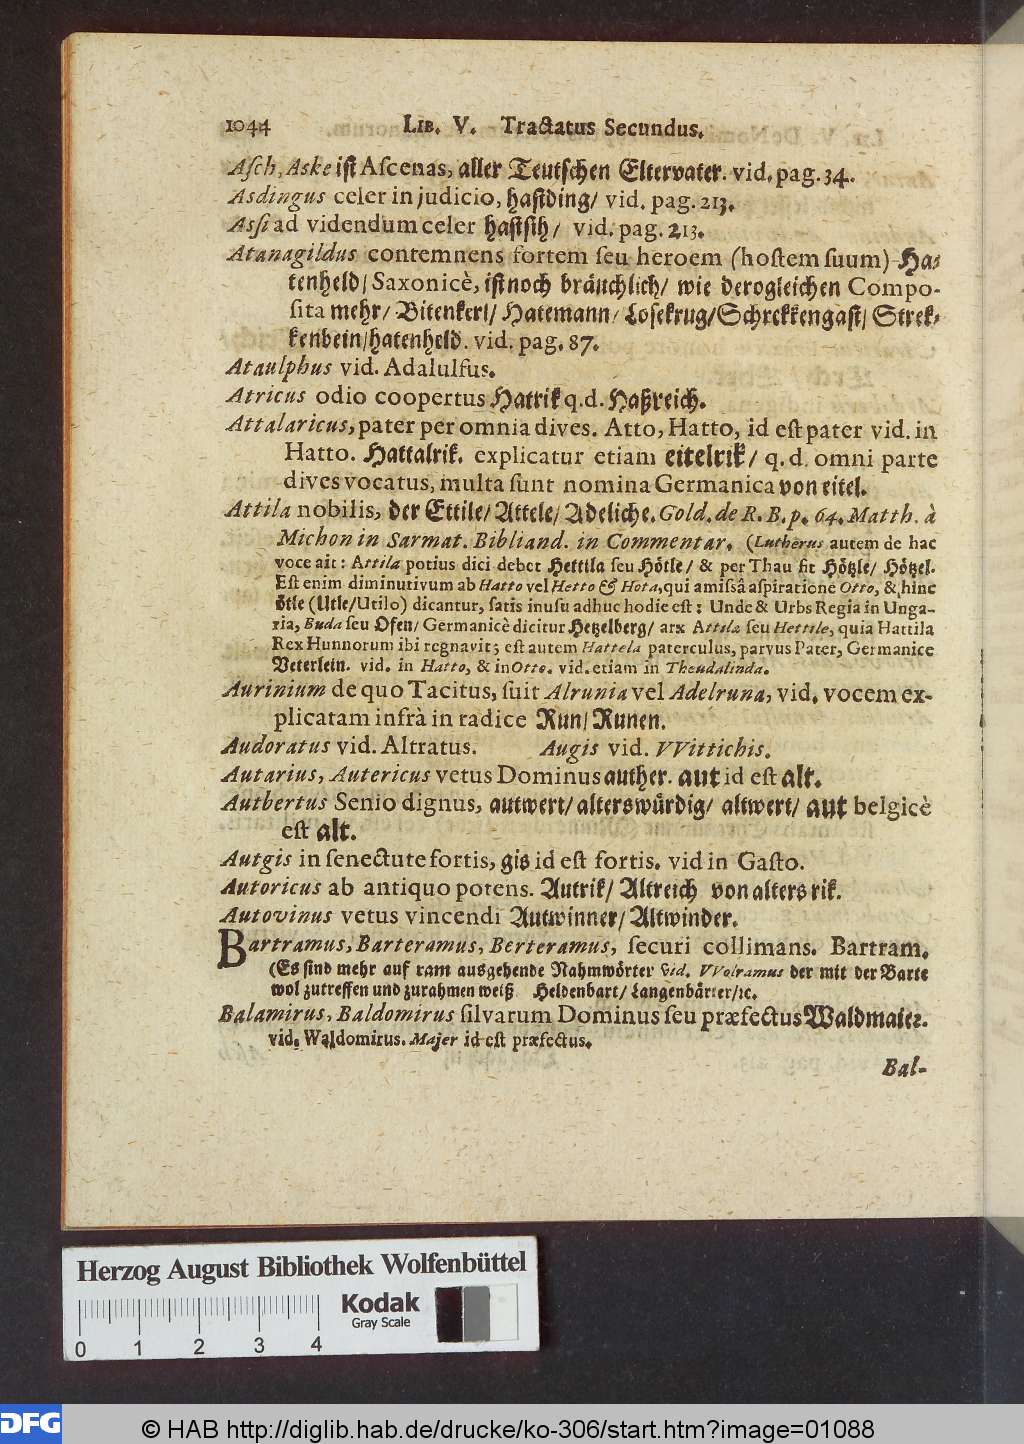 1044 LIB. V. Tractatus Secundus.
Aſch, Aske iſt Aſcenas, aller Teutſchen Eltervater. vid. pag. 34.
Asdingus celer in judicio, haſtding/ vid. pag. 213.
Asſi ad videndum celer haſtſih/ vid. pag. 213.
Atanagildus contemnens fortem ſeu heroem (hoſtem ſuum) Ha⸗
tenheld/ Saxonicè, iſt noch bräuchlich/ wie derogleichen Compo-
ſita mehr/ Bitenkerl/ Hatemann/ Loſekrug/ Schrekkengaſt/ Strek⸗
kenbein/ hatenheld. vid. pag. 87.
Ataulphus vid. Adalulfus.
Atricus odio coopertus Hatrik q.d. Haßreich.
Attalaricus, pater per omnia dives. Atto, Hatto, id eſt pater vid. in
Hatto. Hattalrik. explicatur etiam eitelrik/ q. d. omni parte
dives vocatus, multa ſunt nomina Germanica von eitel.
Attila nobilis, der Ettile/ Attele/ Adeliche. Gold. de R. B. p. 64. Matth. à
Michon in Sarmat. Bibliand. in Commentar. (Lutherus autem de hac
voce ait: Attila potius dici debet Hettila ſeu Hötle/ & per Thau fit Hötzle/ Hötzel.
Eſt enim diminutivum ab Hatto vel Hetto & Hota, qui amiſsâ aſpiratione Otto, & hinc
ötle (Utle/ Utilo) dicantur, ſatis inuſu adhuc hodie eſt: Unde & Urbs Regia in Unga-
ria, Buda ſeu Ofen/ Germanicè dicitur Hetzelberg/ arx Attilæ ſeu Hettile, quia Hattila
Rex Hunnorum ibi regnavit; eſt autem Hattela paterculus, parvus Pater, Germanice
Veterlein. vid. in Hatto, & in Otto. vid. etiam in Theudalinda.
Aurinium de quo Tacitus, fuit Alrunia vel Adelruna, vid. vocem ex-
plicatam infrà in radice Run/ Runen.
Audoratus vid. Altratus. Augis vid. VVittichis.
Autarius, Autericus vetus Dominus auther. aut id eſt alt.
Autbertus Senio dignus, autwert/ alterswürdig/ altwert/ aut belgicè
eſt alt.
Autgis in ſenectute fortis, gis id eſt fortis. vid in Gaſto.
Autoricus ab antiquo potens. Autrik/ Altreich von alters rik.
Autovinus vetus vincendi Autwinner/ Altwinder.
Bartramus, Barteramus, Berteramus, ſecuri collimans. Bartram.
(Es ſind mehr auf ram ausgehende Nahmwörter vid. VVolramus der mit der Barte
wol zutreffen und zurahmen weiß Heldenbart/ Langenbärter/ ꝛc.
Balamirus, Baldomirus ſilvarum Dominus ſeu præfectus Waldmaier.
vid. Waldomirus. Majer id eſt præfectus.
Bal-
Herzog August Bibliothek Wolfenbüttel
Kodak
Gray Scale
0 1 2 3 4
DFG © HAB http://diglib.hab.de/drucke/ko-306/start.htm?image=01088